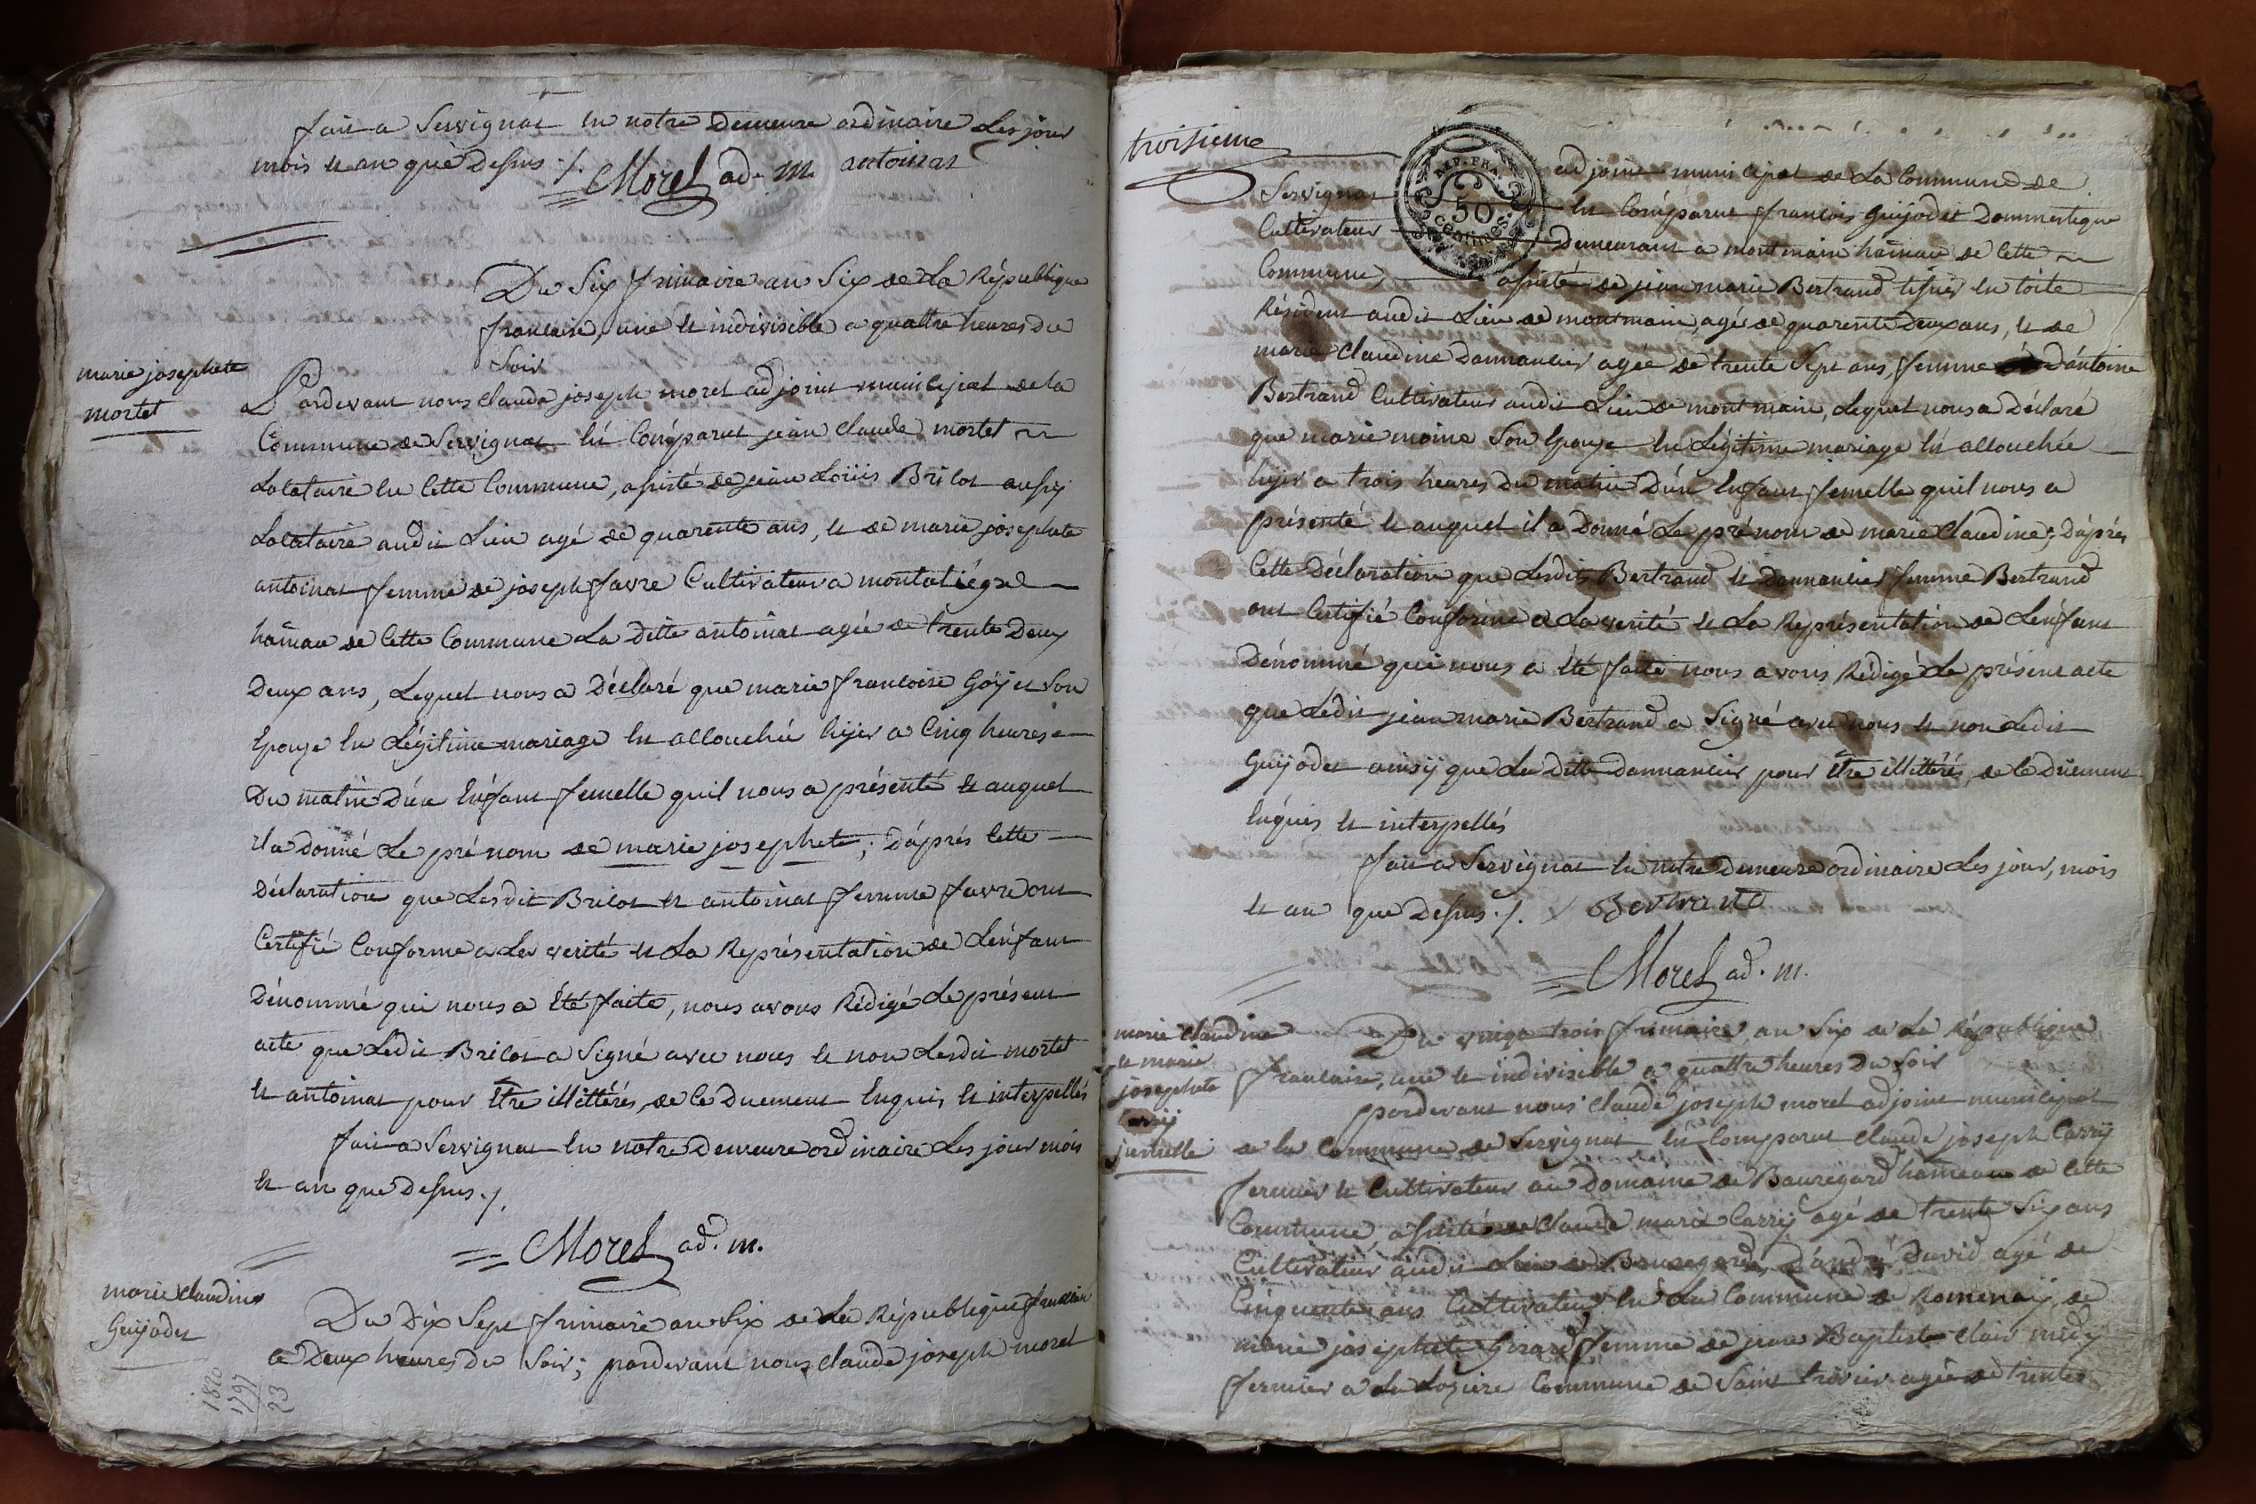 fait a Servignat en notre Demeure ordinaire Les jour
mois et an que Dessus ./. Morel ad. m. antoinat
Du Six frimaire an Six de La République
francaise, une et indivisible a quattre heures du
Soir
marie josephete
mortet
Pardevant nous claude joseph morel adjoint municipal de la
Commune de Servignat est comparut jean claude mortet
Locataire en Cette Commune, assisté de jean Loüis Brilot aussy
Locataire audit Lieu agé de quarente ans, et de marie josephete
antoinat femme de joseph favre Cultivateur a
hamau de Cette Commune La Ditte antoinat agée de trente Deux
Deux ans, Lequel nous a Déclaré que marie francoise Goÿet Son
Epouze en Légitime mariage est allouchée hijer a Cinq heures
Du matin D'un Enfant femelle quil nous a présenté et auquel
il a Donné Le prénom de marie josephete; D'aprés Cette
Déclaration que Lesdit Brilot et antoinat femme favre ont
Certifié Conforme a La verité et La Représentation de L'enfant
Dénommé qui nous a été faite, nous avons Rédigé Le présent
acte que Ledit Brilot a Signé avec nous et non Lesdit mortet
et antoinat pour Etre illittérés, de ce Duement Enquis et interpellés
fait a Servignat en notre Demeure ordinaire Les jour mois
et an que Dessus ./.
Morel ad. m.
marie claudine
Guÿodet
Du Dix Sept frimaire an Six de La République francaise
a Deux heures du Soir; pardevant nous claude joseph morel
1820
1797
23
troisieme
REP. FRA.
50
centimes
adjoint municipal de La Commune de
Servignat est Comparut francois Guÿodet Dommestique
Cultivateur Demeurant a montmain hamau de Cette
Commune, assisté de jean marie Bertrand tissier en toile
Résident audit Lieu de montmain, agé de quarente Deux ans, et de
marie Claudine Dannancier agée de trente Sept ans, femme D'antoine
Bertrand Cultivateur audit Lieu de montmain, Lequel nous a Déclaré
que marie moine Son Epouze en Légitime mariage est allouchée
hijer a trois heures Du matin D'un Enfant femelle quil nous a
présenté et auquel il a Donné Le prénom de marie Claudine; D'aprés
Cette Déclaration que Lesdits Bertrand et Dannancier femme Bertrand
ont Certifié Conforme a La verité et La Représentation de L'enfant
Dénommé qui nous a été faite nous avons Rédigé Le présent acte
que Ledit jean marie Bertrand a Signé avec nous et non Ledit
Guÿodet ainsy que La Ditte Dannancier pour être illittérés, de ce Duement
Enquis et interpellés
fait a Servignat en notre Demeure ordinaire Les jour, mois
et an que Dessus ./. Bertrand
Morel ad. m.
marie claudine
et marie
josephete
Carrÿ
jumelle
Du vingt trois frimaire an Six de La République
francaise, une et indivisible a quattre heures Du Soir
pardevant nous claude joseph morel adjoint municipal
de la Commune de Servignat est Comparut claude joseph Carrÿ
fermier et Cultivateur au Domaine de Bauregard hameau de Cette
Commune, assisté de Claude marie Carrÿ agé de trente Six ans
Cultivateur audit Lieu de Bauregard, D'andré David agé de
Cinquente ans Cultivateur en La Commune de Romenaÿ, de
marie josephete Girard femme de jean Baptiste clair
fermier a La Loziere Commune de Saint trivier agée de trente